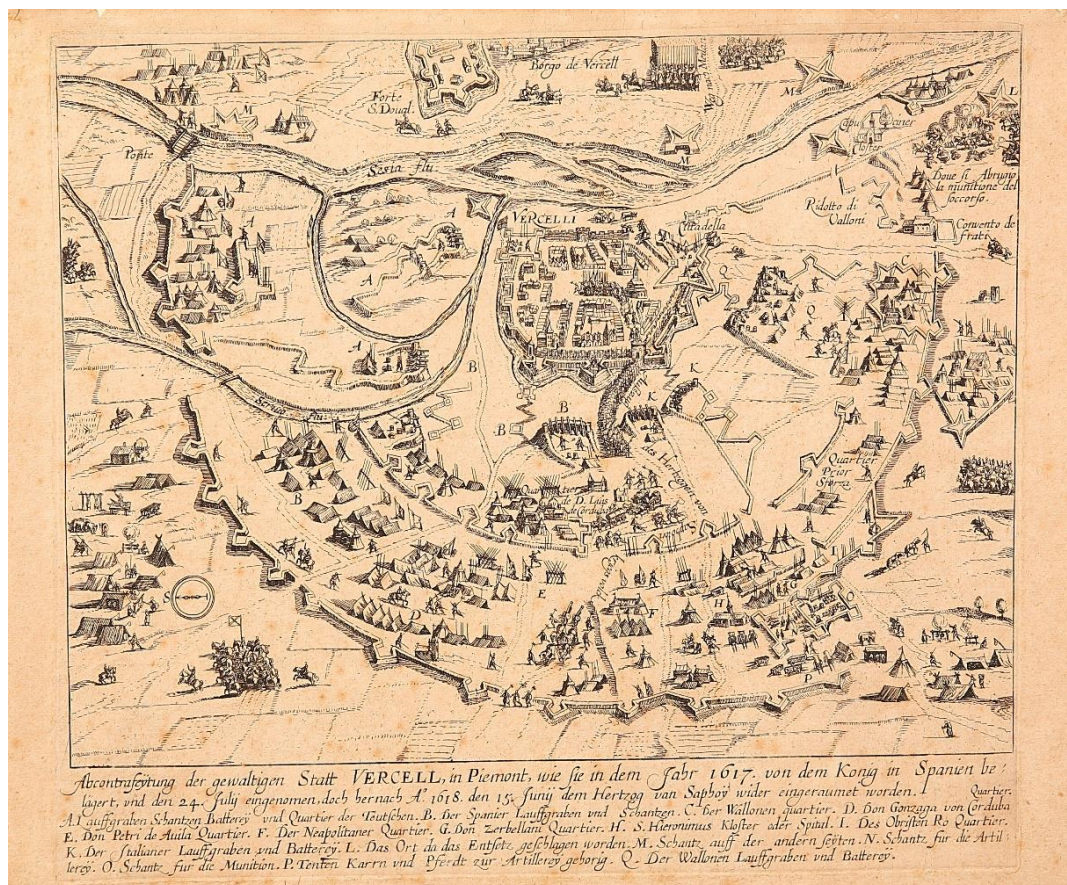 Borgo de Vercell
Forte
S. Dougl.
M
M
L
Capuciner
Closter
Ponte
Sesia flu:
M
Doue si Abrugio
la munitione del
soccorso.
Ridotto di
Valloni
Convento de
frati
A
A
VERCELLI
Cittadella
A
Q
C
Q
A
B
K
K
B
B
Seruo flu:
Quartier
Prior
Sforza
B
Quartier
de D. Luis
de Corduba
S
D
E
F
H
G
I
N
O
P
Abcontrafeytung der gewaltigen Statt VERCELL, in Piemont, wie sie in dem Jahr 1617. von dem Konig in Spanien be-
lägert, vnd den 24. July eingenomen, doch hernach Aº. 1618. den 15. Junij dem Hertzog van Saphoÿ wider eingeraumet worden. Quartier.
A. Lauffgraben Schantzen Batterey vnd Quartier der Teutschen. B. Der Spanier Lauffgraben vnd Schantzen. C. Der Wallonen quartier. D. Don Gonzaga von Corduba
E. Don Petri de Auila Quartier. F. Der Neapolitaner Quartier. G. Don Zerbellani Quartier. H. S. Hieronimus Kloster oder Spital. I. Des Obristen Rò Quartier.
K. Der Italianer Lauffgraben vnd Batterey. L. Das Ort da das Entsetz geschlagen worden. M. Schantz auff der andern seyten. N. Schantz für die Artil-
lerey. O. Schantz für die Munition. P. Tenten Karrn vnd Pferdt zur Artillerey gehorig. Q. Der Wallonen Lauffgraben vnd Batterey.